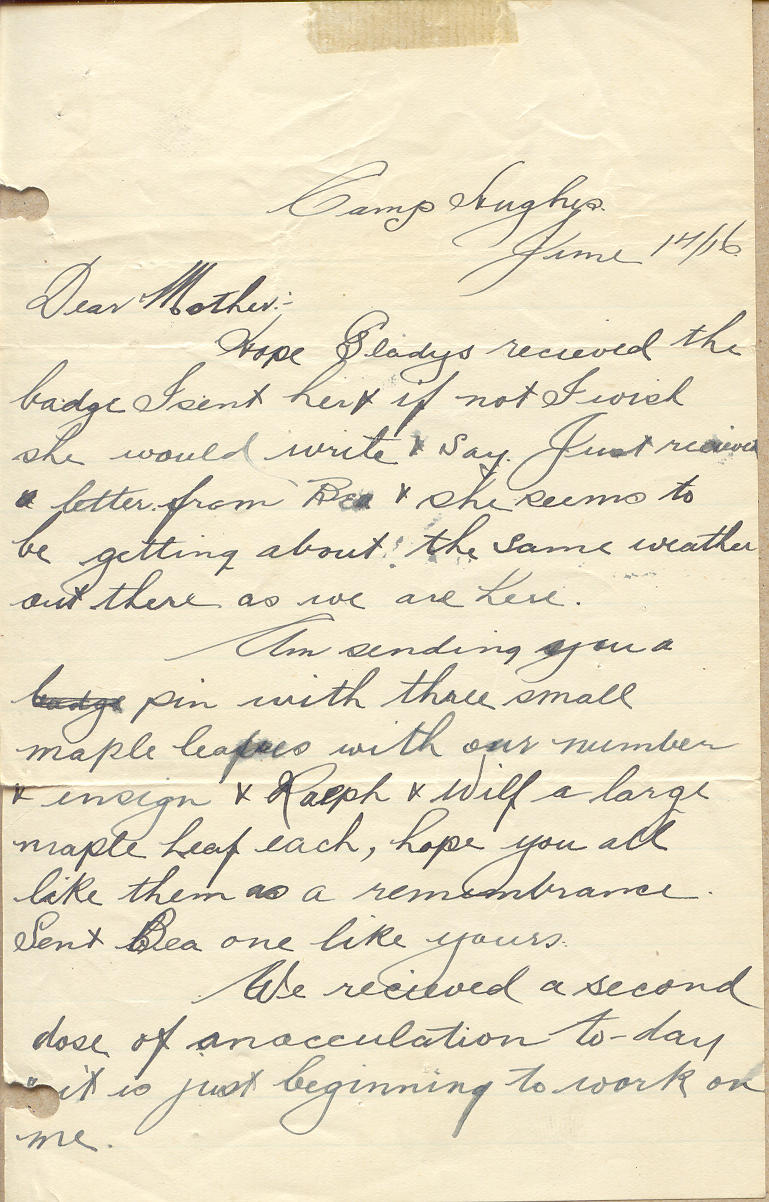 Camp Hughes.
June 14/16.
Dear Mother:-
Hope Gladys recieved the
badge I sent her & if not I wish
she would write & say. Just recieved
a letter from Bea & she seems to
be getting about the same weather
out there as we are here.
Am sending you a
badge pin with three small
maple leafves with our number
& insign & Ralph & Wilf a large
maple leaf each, hope you all
like them as a remembrance.
Sent Bea one like yours.
We recieved a second
dose of anocculation to-day
& it is just beginning to work on
me.